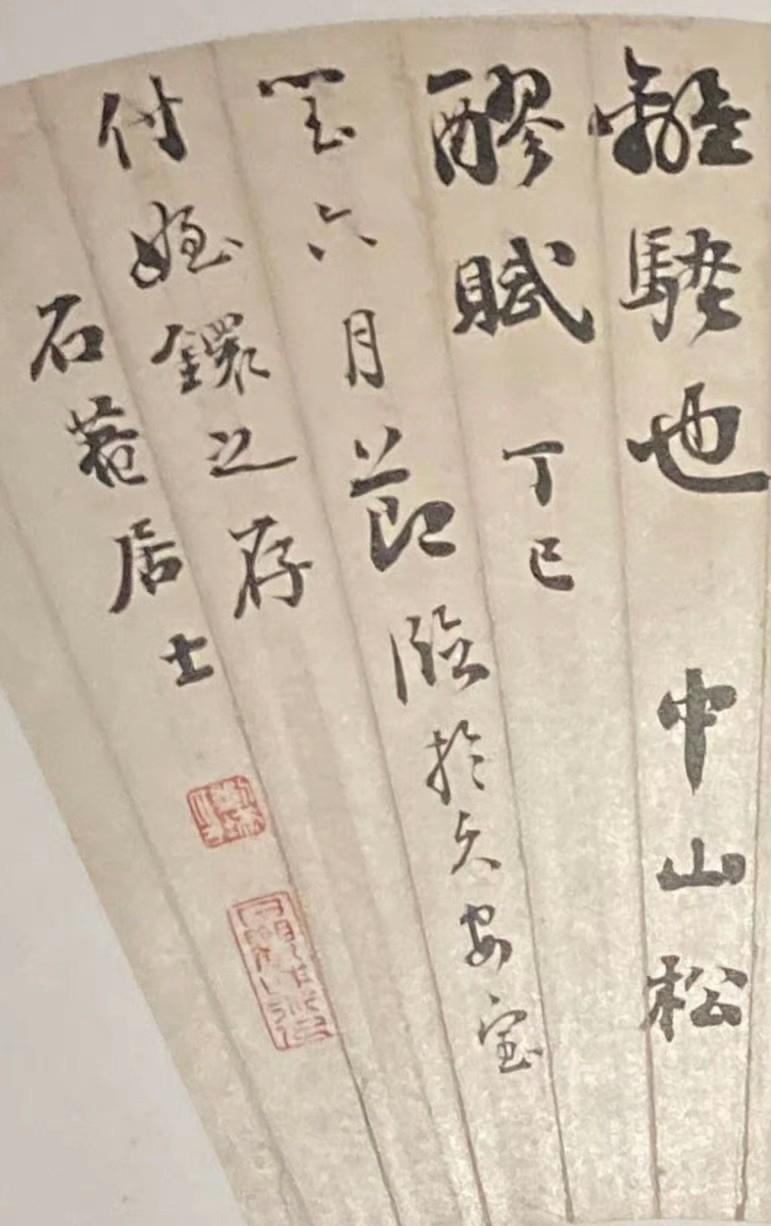 離騷也 中山松
醪賦 丁巳
閏六月節臨於久安室
付姪鐶之存
石菴居士